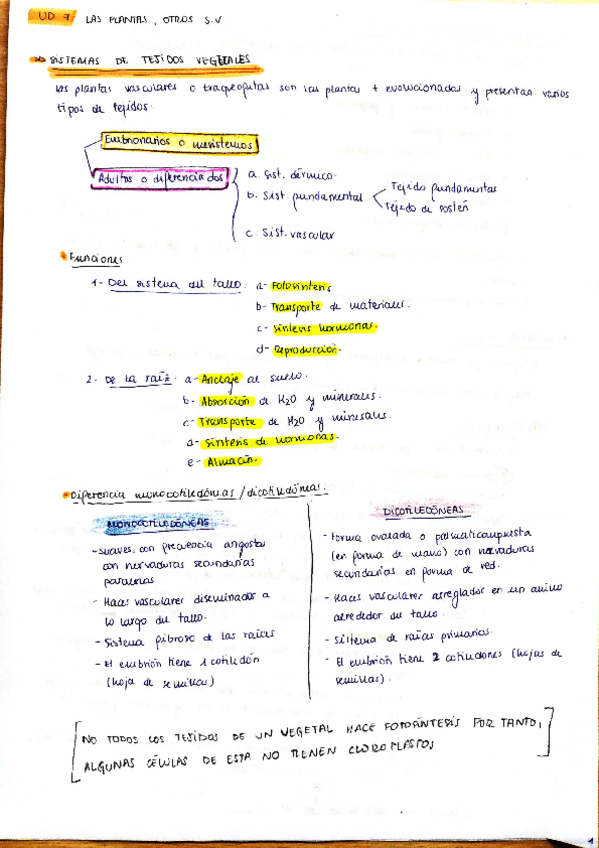 UD 7 LAS PLANTAS, OTROS S.V
SISTEMAS DE TEJIDOS VEGETALES
las plantas vasculares o traqueofitas son las plantas + evolucionadas y presentan varios
tipos de tejidos:
Embrionarios o meristemos
Adultos o diferenciados
a. Sist. dérmico.
b. Sist. fundamental
Tejido fundamental
Tejido de sostén
c. Sist. vascular
Funciones:
1- Del sistema del tallo: a- Fotosíntesis
b- Transporte de materiales.
c- Síntesis hormonas.
d- Reproducción.
2- De la raíz: a- Anclaje al suelo.
b- Absorción de H2O y minerales.
c- Transporte de H2O y minerales.
d- Síntesis de hormonas.
e- Almacén.
Diferencia monocotiledóneas / dicotiledóneas:
MONOCOTILEDÓNEAS
- Suaves, con frecuencia angostas
con nervaduras secundarias
paralelas
- Haces vasculares diseminados a
lo largo del tallo.
- Sistema fibroso de las raíces
- El embrión tiene 1 cotiledón
(hoja de semillas)
DICOTILEDÓNEAS
- Forma ovalada o palmaticompuesta
(en forma de mano) con nervaduras
secundarias en forma de red.
- Haces vasculares arreglados en un anillo
alrededor del tallo.
- Sistema de raíces primarias.
- El embrión tiene 2 cotiledones (hojas de
semillas).
[NO TODOS LOS TEJIDOS DE UN VEGETAL HACE FOTOSÍNTESIS POR TANTO,
ALGUNAS CÉLULAS DE ESTA NO TIENEN CLOROPLASTOS]
1